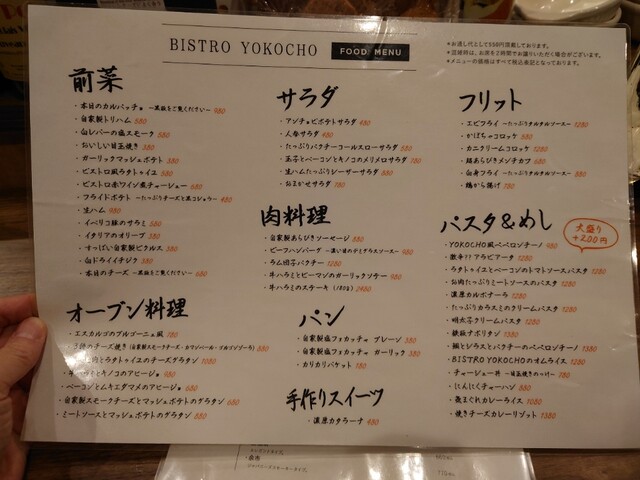 BISTRO YOKOCHO FOOD MENU
*お通し代として550円頂戴しております。
*混雑時は、お席を2時間でお譲りいただく場合がございます。
*メニューの価格はすべて税込表記となっております。
前菜
・本日のカルパッチョ 〜黒板をご覧ください〜 980
・自家製トリハム 580
・白レバーの塩スモーク 580
・おいしい目玉焼き 380
・ガーリックマッシュポテト 380
・ビストロ風ラタトゥイユ 580
・ビストロ赤ワイン煮チャーシュー 680
・フライドポテト 〜たっぷりチーズと黒コショウ〜 480
・生ハム 980
・イベリコ豚のサラミ 580
・イタリアのオリーブ 380
・すっぱい自家製ピクルス 380
・白ドライイチジク 380
・本日のチーズ 〜黒板をご覧ください〜 680
オーブン料理
・エスカルゴのブルゴーニュ風 780
(自家製スモークチーズ・カマンベール・ゴルゴンゾーラ) 880
とラタトゥイユのチーズグラタン 1080
とキノコのアヒージョ 980
・ベーコンとムキエダマメのアヒージョ 680
・自家製スモークチーズとマッシュポテトのグラタン 680
・ミートソースとマッシュポテトのグラタン 880
サラダ
・アンチョビポテトサラダ 480
・人参サラダ 480
・たっぷりパクチーコールスローサラダ 580
・玉子とベーコンとキノコのメリメロサラダ 780
・生ハムたっぷりシーザーサラダ 880
・おまかせサラダ 780
肉料理
・自家製あらびきソーセージ 880
・ビーフハンバーグ 〜濃い目のデミグラスソース〜 980
・ラム団子パクチー 1280
・牛ハラミとピーマンのガーリックソテー 980
・牛ハラミのステーキ (180g) 2480
パン
・自家製塩フォカッチャ プレーン 380
・自家製塩フォカッチャ ガーリック 380
・カリカリバゲット 180
手作りスイーツ
・濃厚カタラーナ 480
フリット
・エビフライ 〜たっぷりタルタルソース〜 1280
・かぼちゃコロッケ 580
・カニクリームコロッケ 1280
・鶏から揚げ 780
パスタ&めし
大盛り
+200円
・YOKOCHO風ペペロンチーノ 980
・激辛??アラビアータ 1280
・ラタトゥイユとベーコンのトマトソースパスタ 1280
・お肉たっぷりミートソースのパスタ 1280
・濃厚カルボナーラ 1280
・たっぷりカラスミのクリームパスタ 1280
・明太子クリームパスタ 1280
・鉄板ナポリタン 1380
・鯛とシラスとパクチーのペペロンチーノ 1380
・BISTRO YOKOCHOのオムライス 1280
・チャーシュー丼 〜目玉焼きのっけ〜 780
・にんにくチャーハン 880
・気まぐれカレーライス 1080
・焼きチーズカレーリゾット 1380